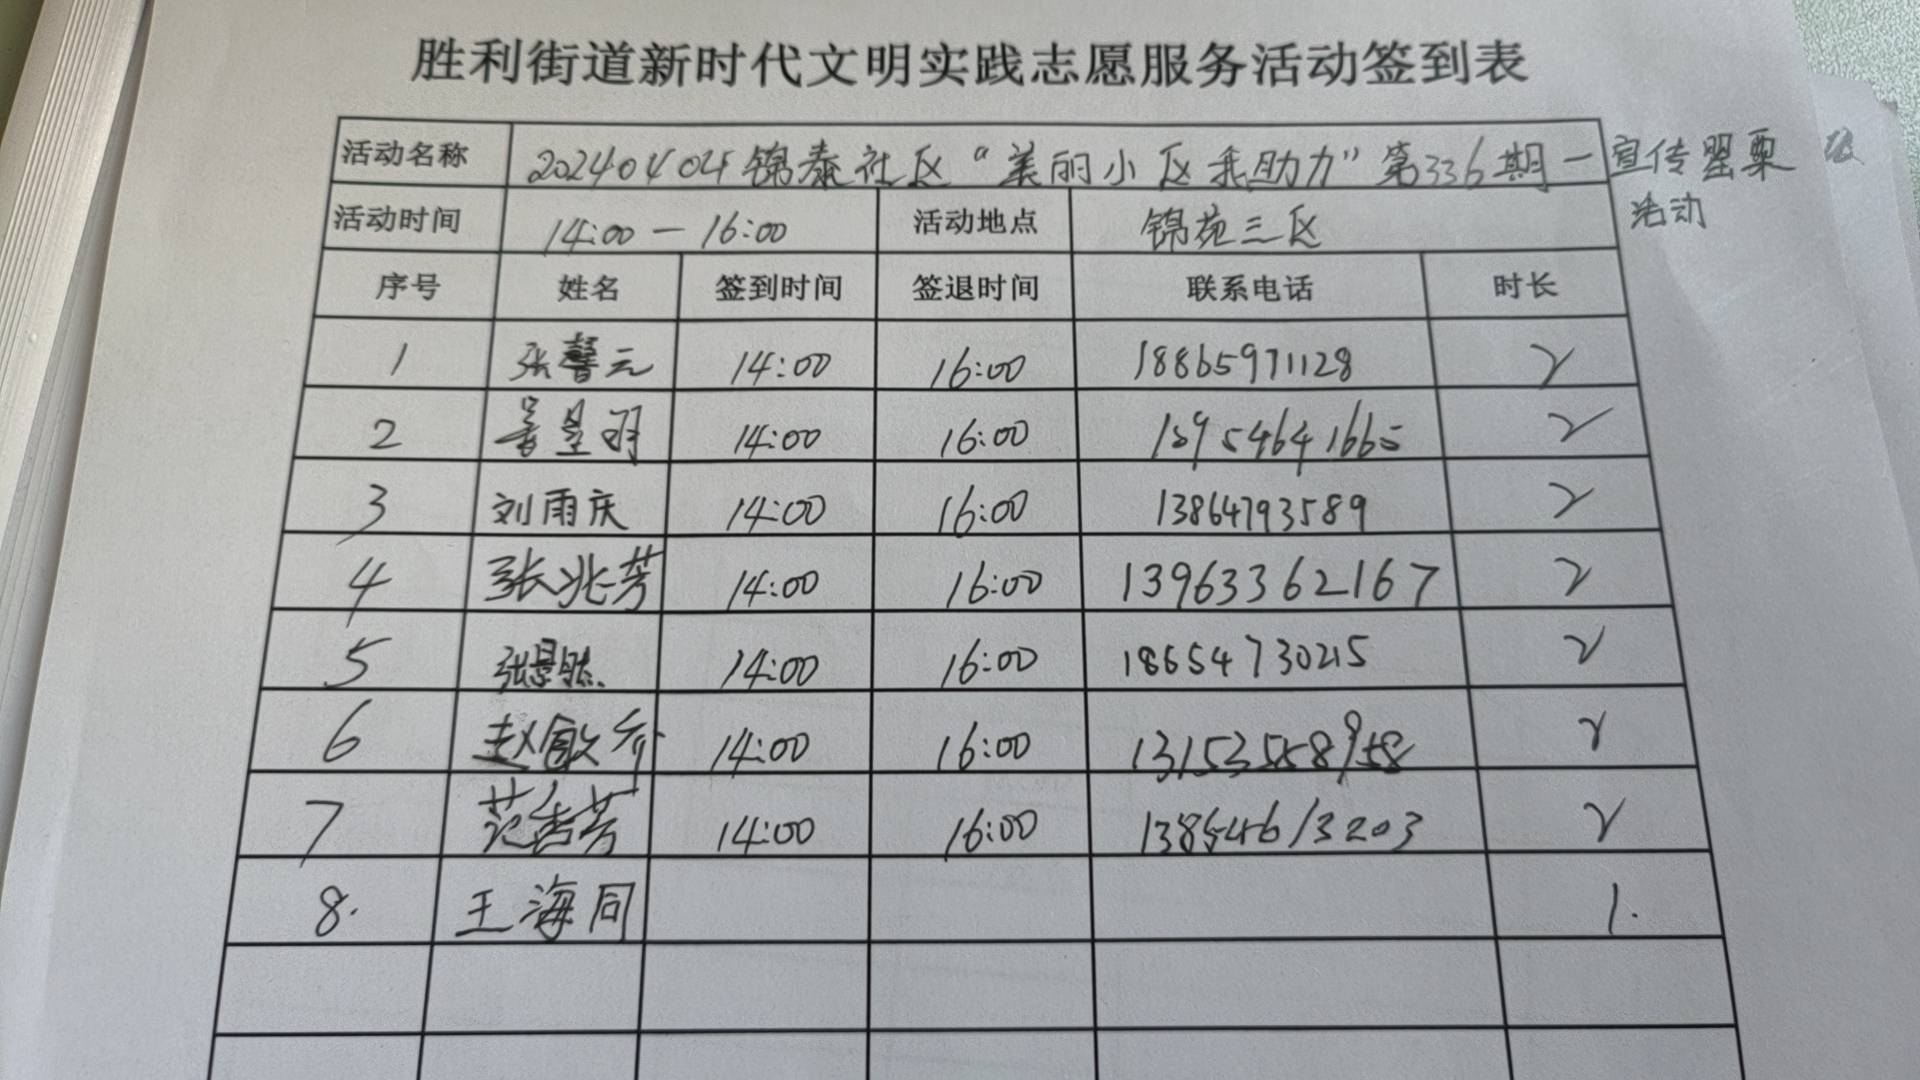 胜利街道新时代文明实践志愿服务活动签到表
活动名称 20240404锦泰社区“美丽小区我助力”第336期一宣传罂粟
活动
活动时间 14:00一16:00 活动地点 锦苑三区
序号 姓名 签到时间 签退时间 联系电话 时长
1 张馨元 14:00 16:00 18865971128 2
2 姜昱羽 14:00 16:00 2
3 刘雨庆 14:00 16:00 13864793589 2
4 张兆芳 14:00 16:00 13963362167 2
5 张 14:00 16:00 18654730215 2
6 赵 14:00 16:00 2
7 范杏芳 14:00 16:00 13854613203 2
8. 王海同 1.